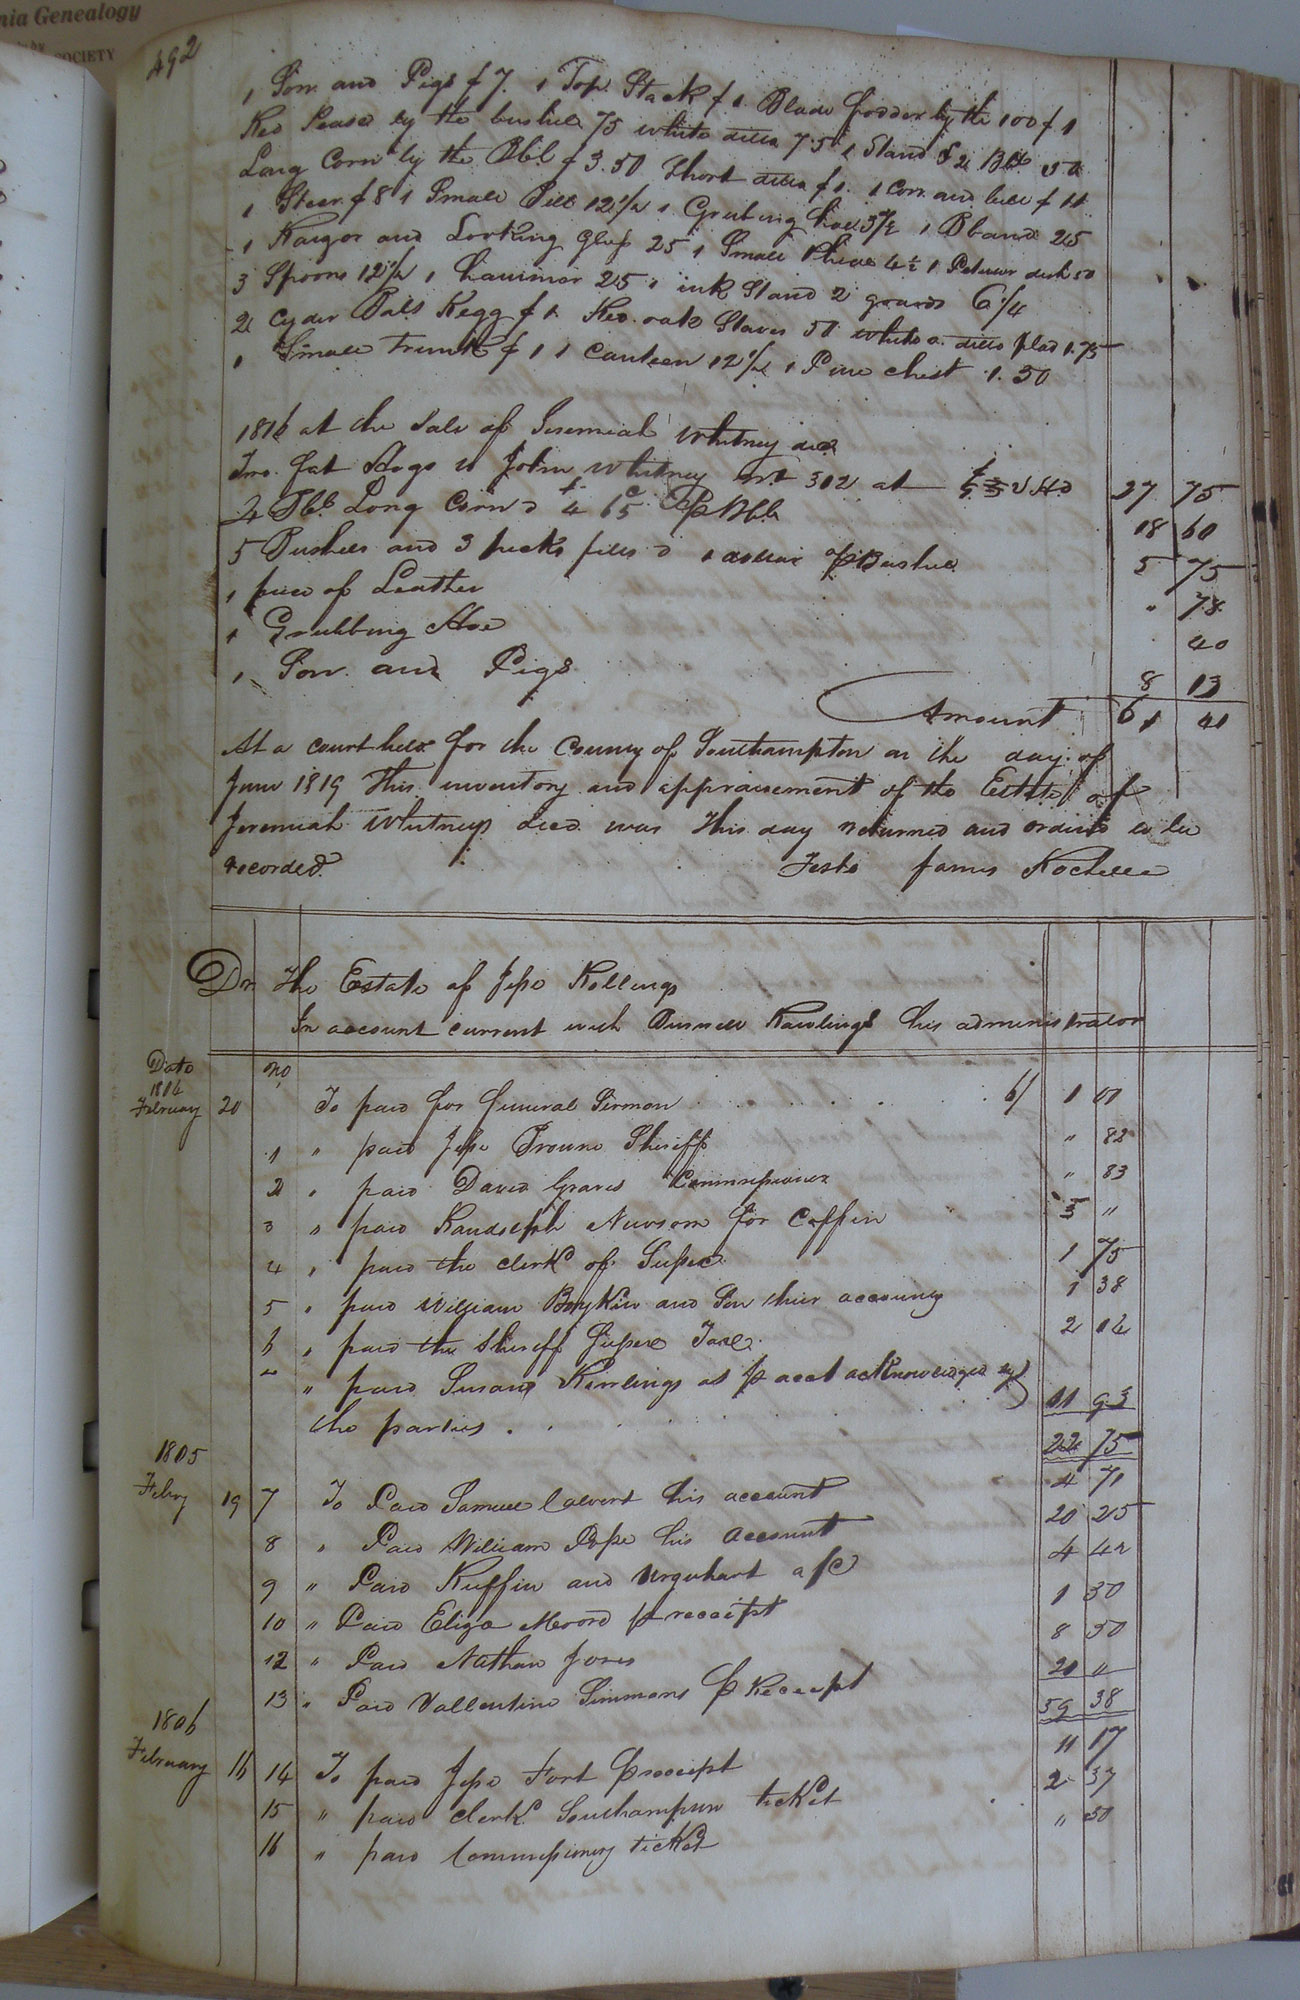 nia Genealogy
SOCIETY
492
1 Sow and Pigs $7. 1 Top Stack $1. Blade fodder by the 100 $1
Red Pease by the bushel 75 white ditto 75 1 Stand & 2 Bbls 50
Long Corn by the Bbl $3.50 Short ditto $1. 1 Cow and $11
1 Steer $8 1 Small 12 1/2 1 Grubing hoe 37 1/2 1 25
1 Razor and Looking Glass 25 1 Small 4 1/2 1 Peuter dish 50
3 Spoons 12 1/2 1 hammer 25 1 ink Stand 2 6 1/4
2 Cyder Bbls Kegg $1. Red oak Staves 50 white o. ditto 1.75
1 Small trunk $1 1 Canteen 12 1/2 1 Pine chest 1.50
1816 at the Sale of Jeremiah Whitney decd
Two fat Hogs to John Whitney wt 302 at 27 75
4 Bbls Long Corn @ $4 65c P Bbl 18 60
5 Bushels and 3 pecks @ 1 dollar P Bushel 5 75
1 piece of Leather " 78
1 Grubbing Hoe 40
1 Sow and Pigs 8 13
Amount 61 41
At a court held for the County of Southampton on the day of
June 1819 This inventory and appraisement of the Estate of
Jeremiah Whitney decd. was This day returned and ordered to be
recorded. Teste James Rochelle
Dr The Estate of Jesse Rollings
In account current with Burwell Rawlings his administrator
Date No
1804
February 20 To paid for funeral Sermon 6/ 1 01
1 " paid Jesse Browne Sheriff " 82
2 " paid David Graves Commissioner " 83
3 " paid Randolph Newsom for Coffin 3 "
4 " paid the clerk of Sussex 1 75
5 " paid William Boykin and Son their account 1 38
6 " paid the Sheriff Sussex Tax 2
" paid Susana Rawlings as p acct acknowledged by
the parties 11 93
22 75
1805
Febry 19 7 To Paid Samuel Calvert his account 4 71
8 " Paid William Pope his account 20 25
9 " Paid Ruffin and Urquhart a/c 4 42
10 " Paid Eliza Moore p receipt 1 50
12 " Paid Nathan Jones 8 50
13 " Paid Vallentine Simmons P Receipt 20 "
59 38
1806
February 16 14 To paid Jesse Fort P receipt 11 17
15 " paid clerk Southampton ticket 2 37
16 " paid Commissioners ticket " 50